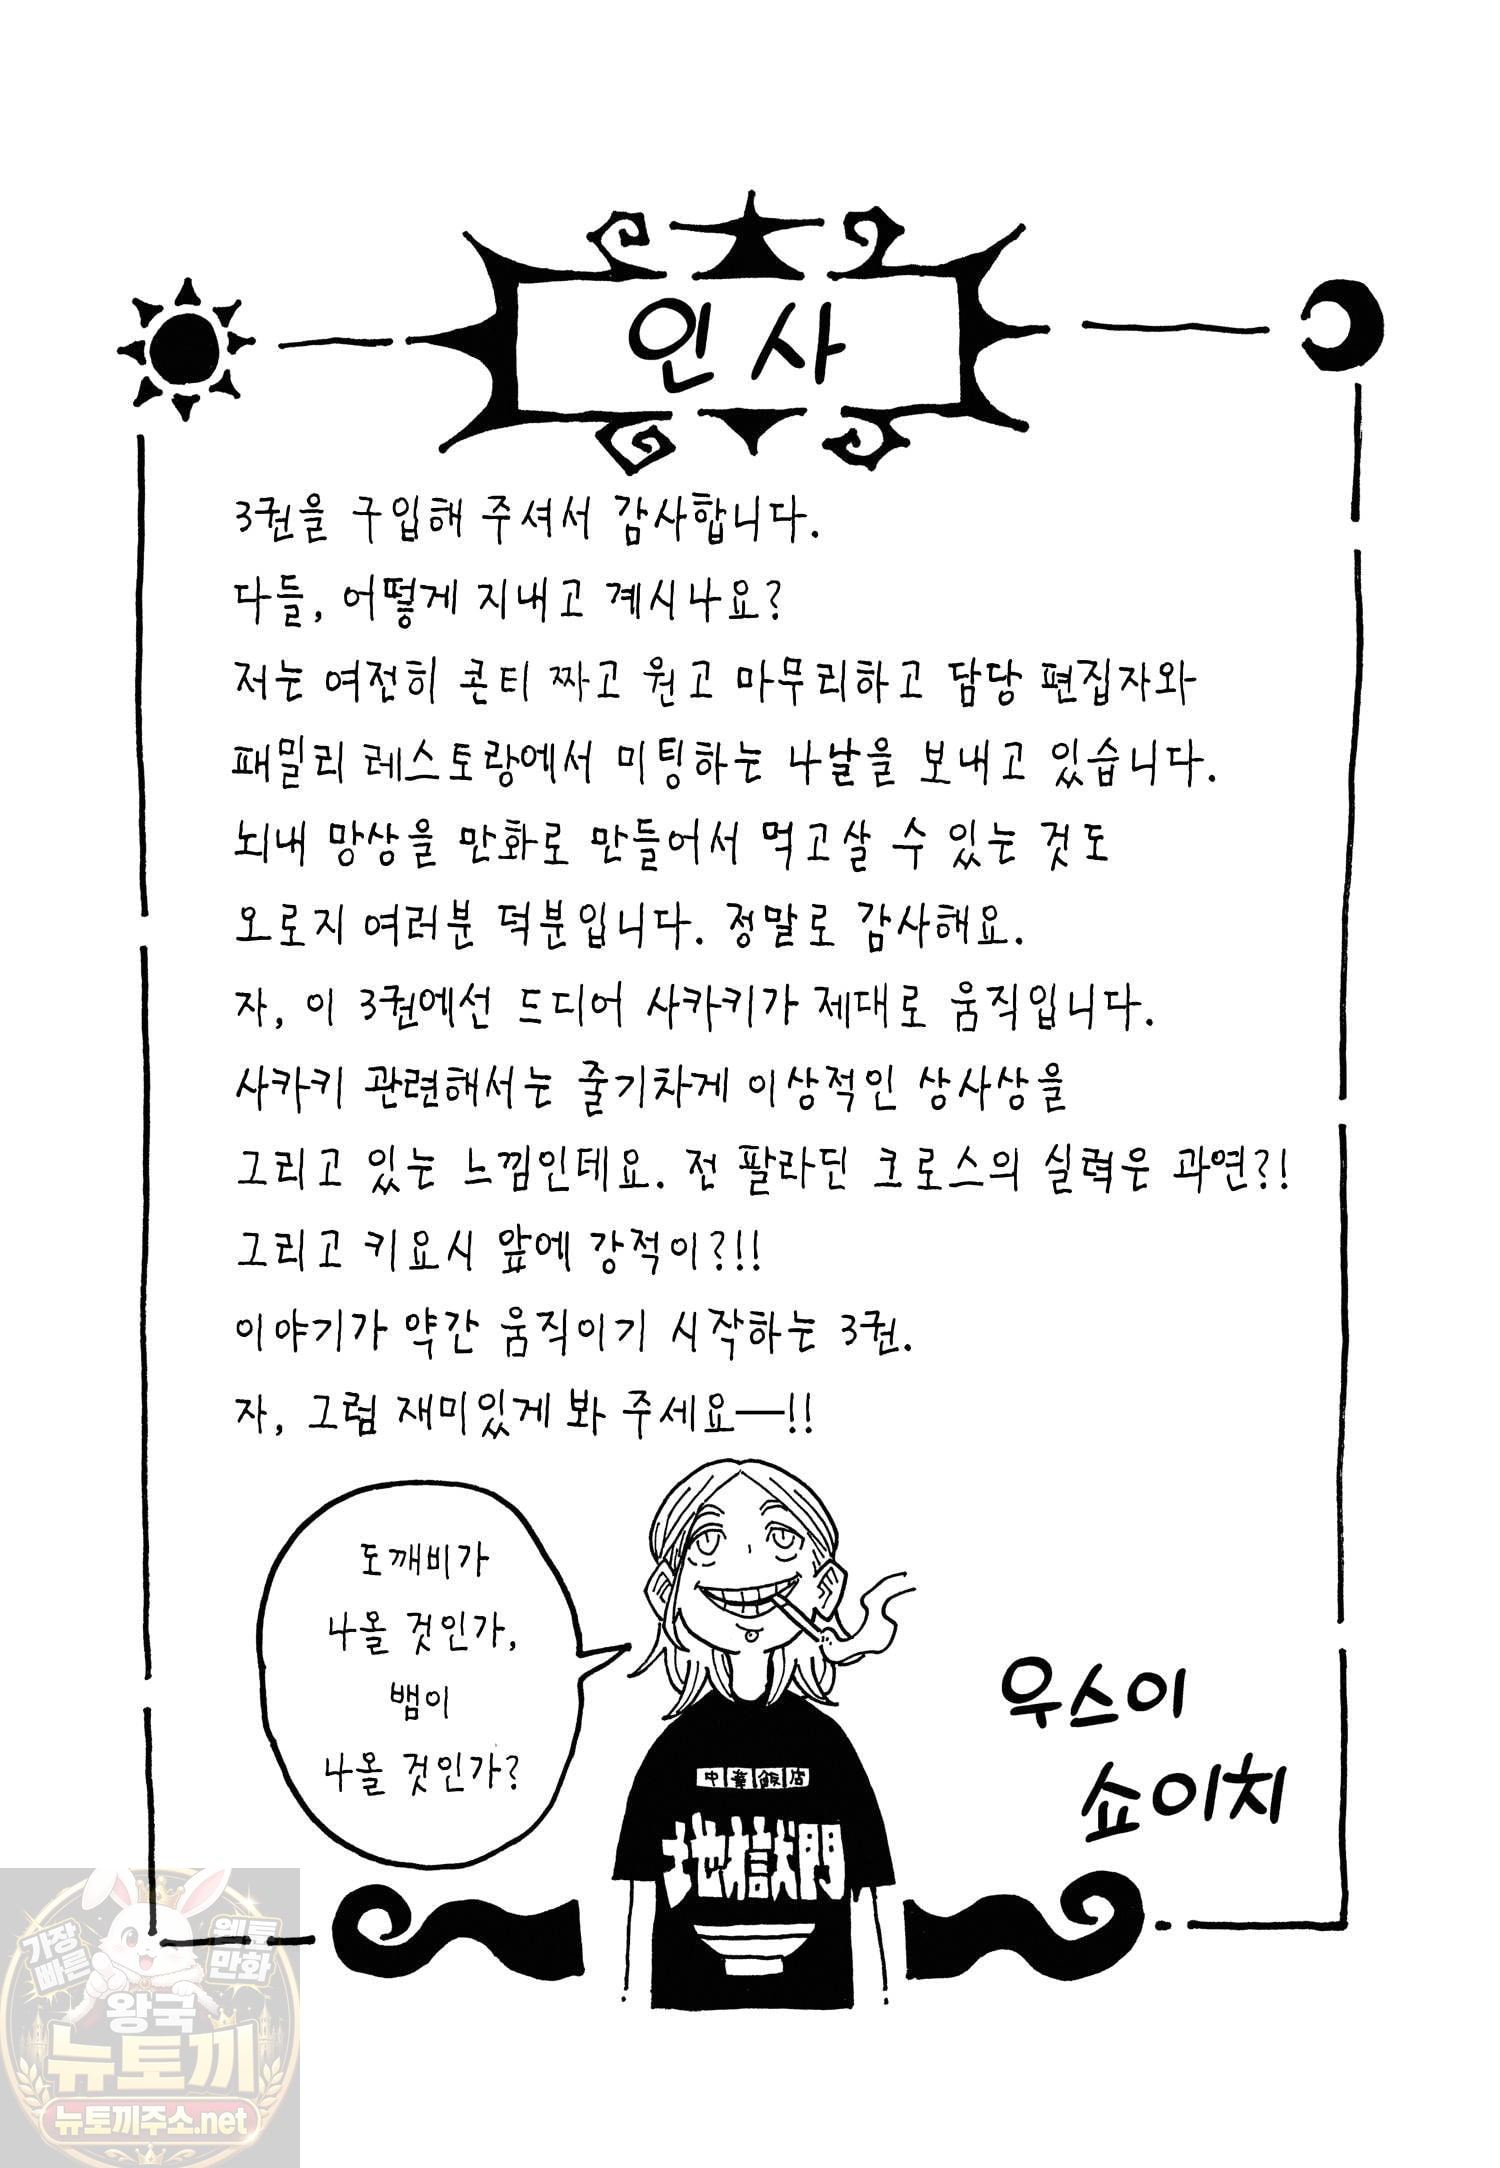 인사
3권을 구입해 주셔서 감사합니다.
다들, 어떻게 지내고 계시나요?
저는 여전히 콘티 짜고 원고 마무리하고 담당 편집자와
패밀리 레스토랑에서 미팅하는 나날을 보내고 있습니다.
뇌내 망상을 만화로 만들어서 먹고살 수 있는 것도
오로지 여러분 덕분입니다. 정말로 감사해요.
자, 이 3권에선 드디어 사카키가 제대로 움직입니다.
사카키 관련해서는 줄기차게 이상적인 상사상을
그리고 있는 느낌인데요. 전 팔라딘 크로스의 실력은 과연?!
그리고 키요시 앞에 강적이?!!
이야기가 약간 움직이기 시작하는 3권.
자, 그럼 재미있게 봐 주세요──!!
도깨비가
나올 것인가,
뱀이
나올 것인가?
우스이
쇼이치
中華飯店
地獄門
가장
빠른
웹툰
만화
왕국
뉴토끼
뉴토끼주소.net